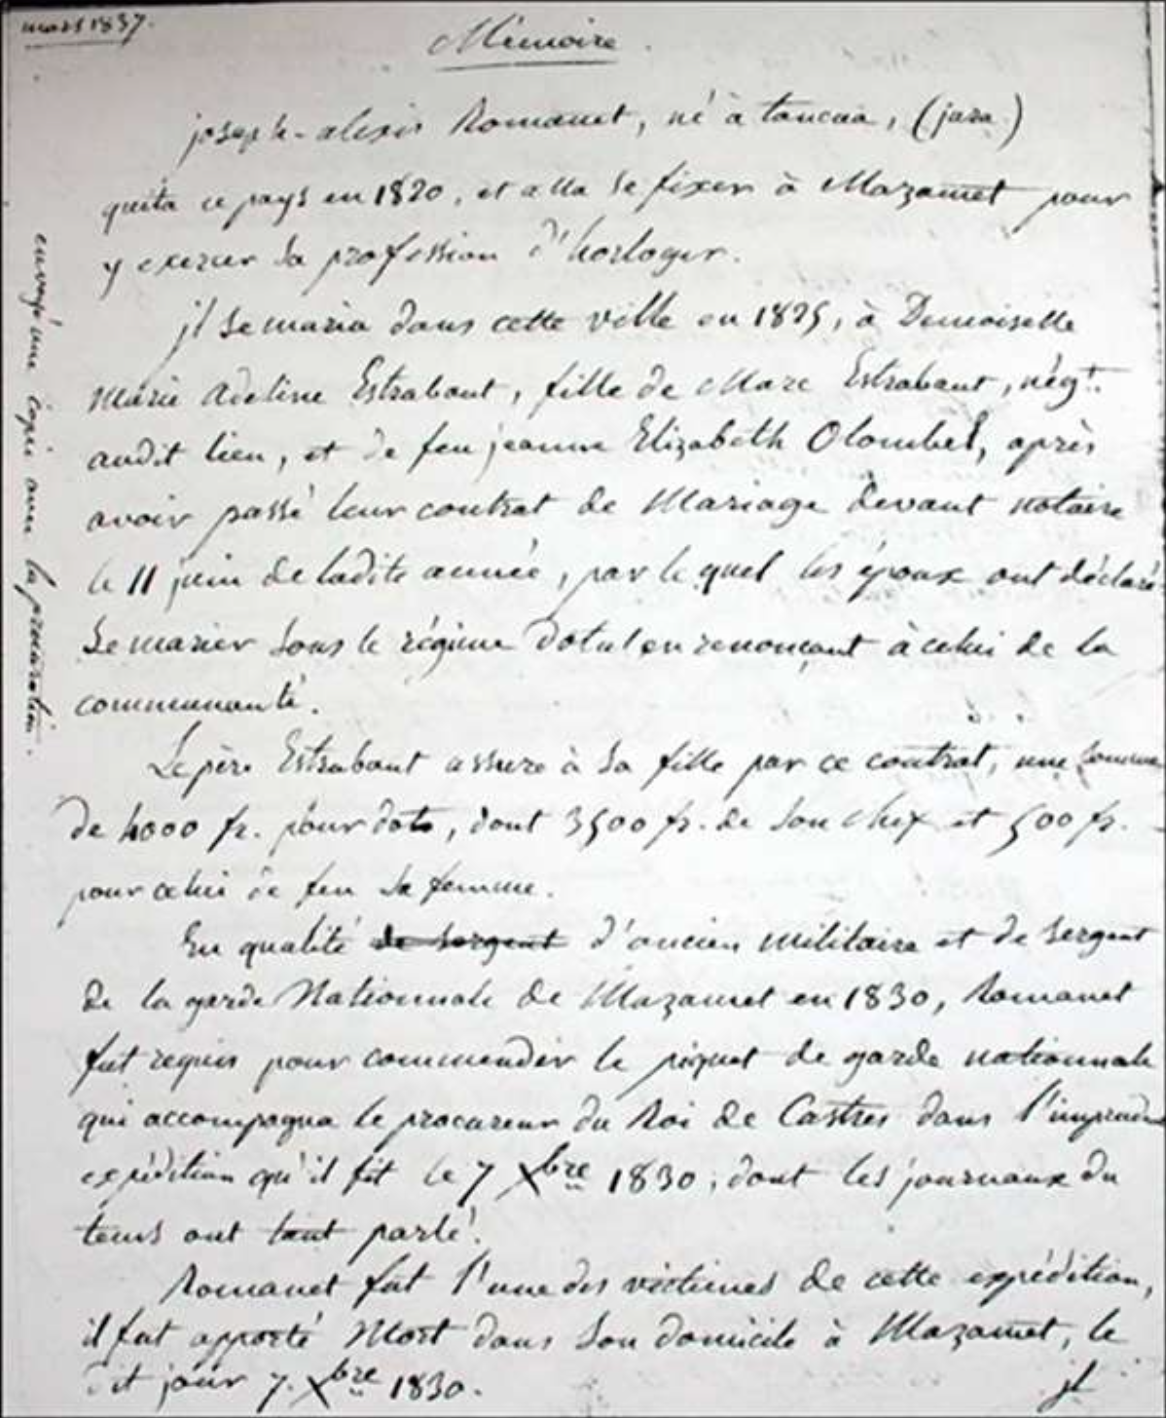 mars 1837.
Mémoire.
joseph-alexis Romanet, né à tancua, (jura)
quita ce pays en 1820, et alla se fixer à Mazamet pour
y exercer sa profession d'horloger.
jl se maria dans cette ville en 1825, à Demoiselle
Marie Adeline Estrabaut, fille de Marc Estrabaut, négt.
audit lieu, et de feu jeanne Elizabeth Olombel, après
avoir passé leur contrat de Mariage devant notaire
le 11 juin de ladite année, par lequel les époux ont déclaré
se marier sous le régime dotal en renonçant à celui de la
communauté.
Le père Estrabaut assure à sa fille par ce contrat, une somme
de 4000 fr. pour dote, dont 3500 fr. de son chef et 500 fr.
pour celui de feu sa femme.
En qualité de sergent d'ancien militaire et de sergent
de la garde Nationnale de Mazamet en 1830, Romanet
fut requis pour commender le piquet de garde nationnale
qui accompagna le procureur du Roi de Castres dans l'imprudente
expédition qu'il fit le 7 Xbre 1830; dont les journaux du
tems ont tant parlé!
Romanet fut l'une des victimes de cette expédition,
il fut apporté Mort dans son domicile à Mazamet, le
dit jour 7. Xbre 1830.
jl
envoyé une copie avec la procuration.